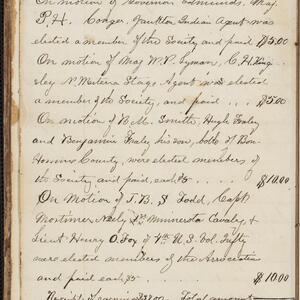 On motion of Governor Edmunds, Maj.
P.H. Conger, Yankton Indian Agent was
elected a member of the Society and paid $5.00
On motion of Maj W.P. Lyman, C.H. King
ley N. Western Stage Agent was elected
a member of the Society, and paid . . . $5.00
On motion of B.M. Smith, Hugh Fraley
and Benjamin Fraley his son, both of Bon
Homme County, were elected members of
the Society and paid, each $5 - . . . $10.00
On Motion of J.B.S Todd, Capt
Mortimer Neely 1st Minnesota Cavalry, &
Lieut Henry O. Fox of 4th U.S. Vol. Infty
were elected members of the Association
and paid each $5 . . . . $10.00
Total amount